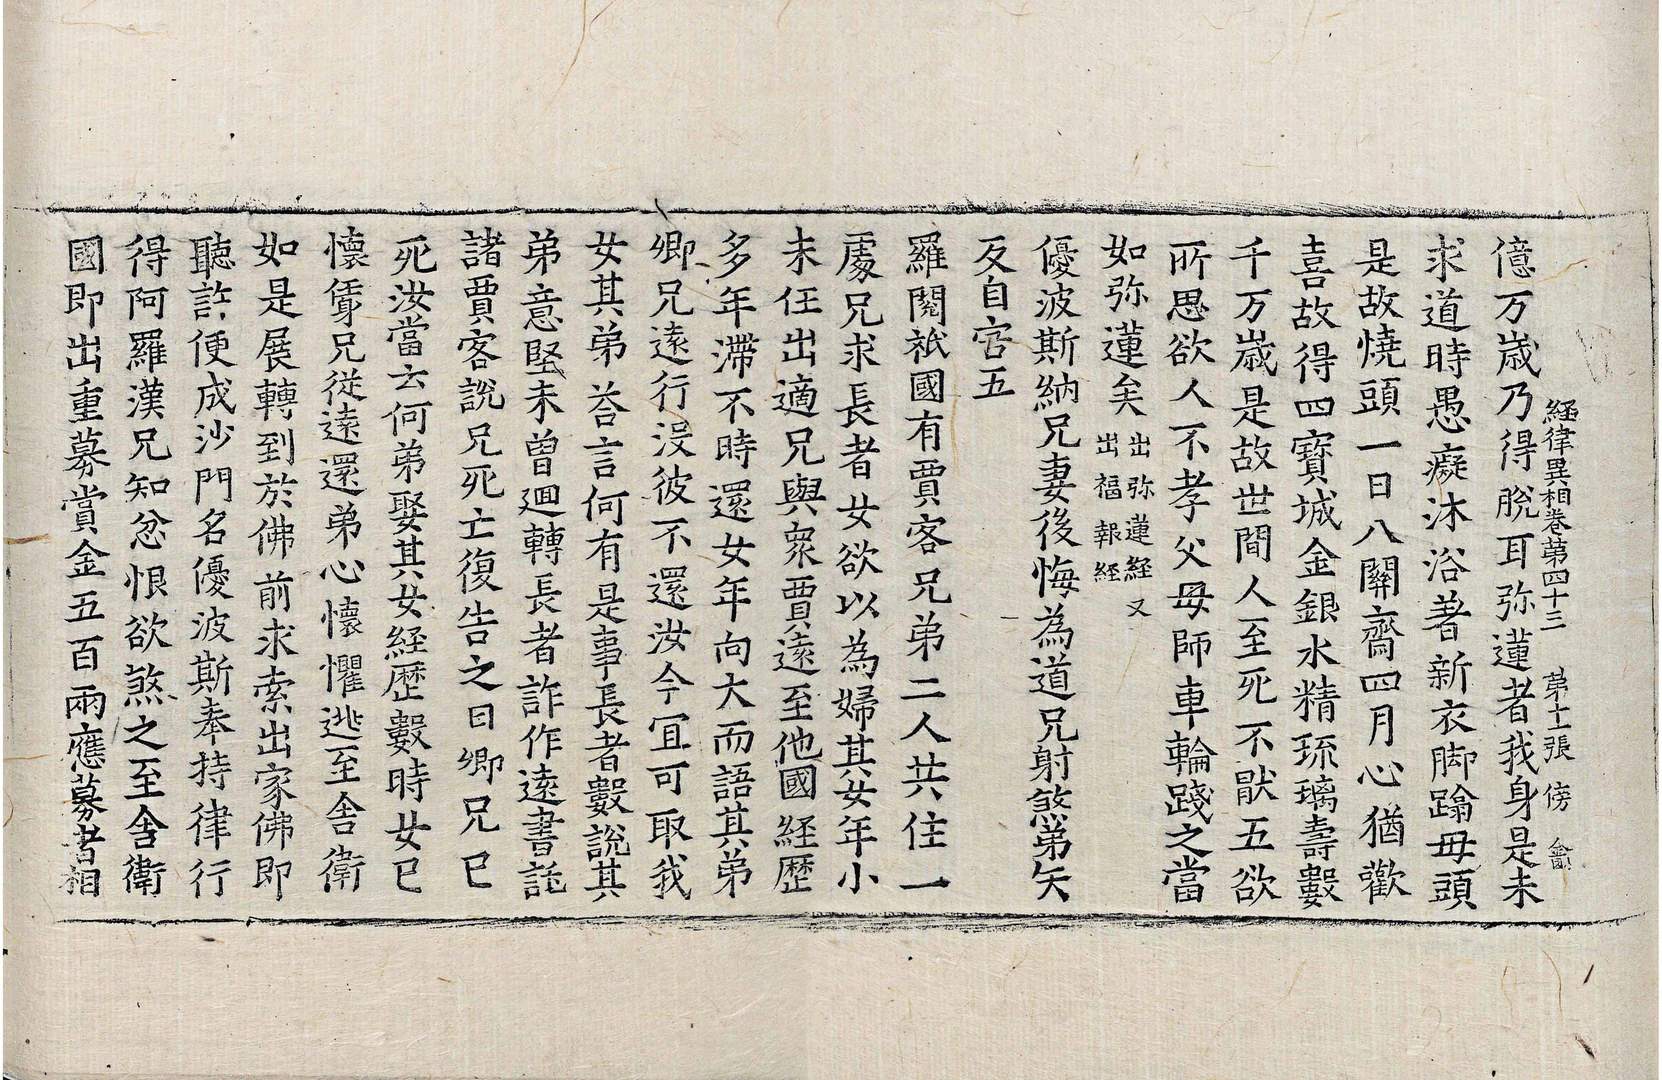 経律異相卷第四十三　第十一張　傍
億万歲乃得脫耳弥蓮者我身是未
求道時愚癡沐浴著新衣脚蹹毋頭
是故燒頭一日八關齋四月心猶歡
喜故得四寶城金銀水精琉璃壽數
千万歲是故世間人至死不猒五欲
所思欲人不孝父毋師車輪踐之當
如弥蓮矣出弥蓮経又出福報経
優波斯納兄妻後悔為道兄射煞弟矢
反自害五
羅閱祇國有賈客兄弟二人共住一
處兄求長者女欲以為婦其女年小
未任出適兄與衆賈遠至他國経歷
多年滯不時還女年向大而語其弟
卿兄遠行没彼不還汝今冝可取我
女其弟荅言何有是事長者數說其
弟意堅未曾迴轉長者詐作遠書託
諸賈客說兄死亡復告之曰卿兄已
死汝當云何弟娶其女経歷數時女已
懷㝃兄從遠還弟心懷懼逃至舍衛
如是展轉到於佛前求索出家佛即
聽許便成沙門名優波斯奉持律行
得阿羅漢兄知忿恨欲煞之至舍衛
國即出重募賞金五百兩應募者相